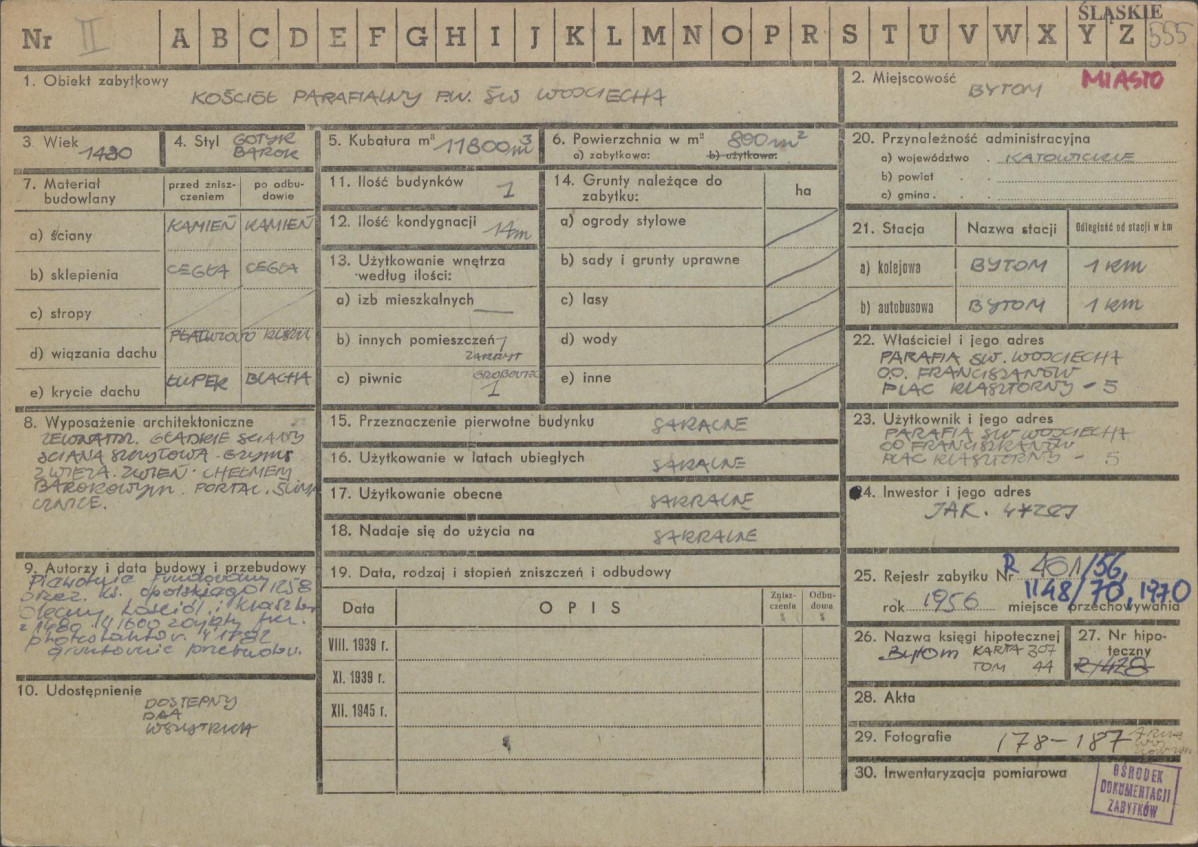 Nr II A B C D E F G H I J K L M N O P R S T U V W X Y Z
ŚLĄSKIE
555
1. Obiekt zabytkowy
KOŚCIÓŁ PARAFIALNY P.W. ŚW WOJCIECHA
2. Miejscowość
BYTOM
MIASTO
3. Wiek
1480
4. Styl GOTYK
BAROK
5. Kubatura m³ 11800m³
6. Powierzchnia w m² 800m²
a) zabytkowa: b) użytkowa:
7. Materiał budowlany
przed zniszczeniem
po odbudowie
a) ściany KAMIEŃ KAMIEŃ
b) sklepienia CEGŁA CEGŁA
c) stropy
d) wiązania dachu
e) krycie dachu ŁUPEK BLACHA
8. Wyposażenie architektoniczne
GŁADKIE SCIANY
SCIANA SZCZYTOWA
BAROKOWYM. PORTAL.
9. Autorzy i data budowy i przebudowy
Pierwotnie fundowany
przez. ks. opolskiego 1258
Obecny kościół i klasztor
z 1480 W 1600 zajęty przez
protestantów. W 1782
gruntownie przebudow.
10. Udostępnienie
DOSTEPNY
DLA
WSZYSTKICH
11. Ilość budynków 1
12. Ilość kondygnacji 14m
13. Użytkowanie wnętrza według ilości:
a) izb mieszkalnych —
b) innych pomieszczeń 1
ZAKRYST
c) piwnic GROBOWIEC
1
14. Grunty należące do zabytku:
ha
a) ogrody stylowe
b) sady i grunty uprawne
c) lasy
d) wody
e) inne
15. Przeznaczenie pierwotne budynku SAKRALNE
16. Użytkowanie w latach ubiegłych SAKRALNE
17. Użytkowanie obecne SAKRALNE
18. Nadaje się do użycia na SAKRALNE
19. Data, rodzaj i stopień zniszczeń i odbudowy
Data
OPIS
Zniszczenia %
Odbudowa %
VIII. 1939 r.
XI. 1939 r.
XII. 1945 r.
20. Przynależność administracyjna
a) województwo . KATOWICKIE
b) powiat .
c) gmina . .
21. Stacja
Nazwa stacji
Odległość od stacji w km
a) kolejowa BYTOM 1 km
b) autobusowa BYTOM 1 km
22. Właściciel i jego adres
PARAFIA ŚW. WOJCIECHA
O.O. FRANCISZKANÓW
PLAC KLASZTORNY - 5
23. Użytkownik i jego adres
PARAFIA ŚW WOJCIECHA
OO FRANCISZKANÓW
PLAC KLASZTORNY - 5
24. Inwestor i jego adres
JAK. WYZEJ
25. Rejestr zabytku Nr R 401/56,
1148/70, 1970
rok 1956 miejsce przechowywania
26. Nazwa księgi hipotecznej
Bytom KARTA 307
TOM 44
27. Nr hipoteczny
R/428
28. Akta
29. Fotografie 178-187
30. Inwentaryzacja pomiarowa
OŚRODEK
DOKUMENTACJI
ZABYTKÓW